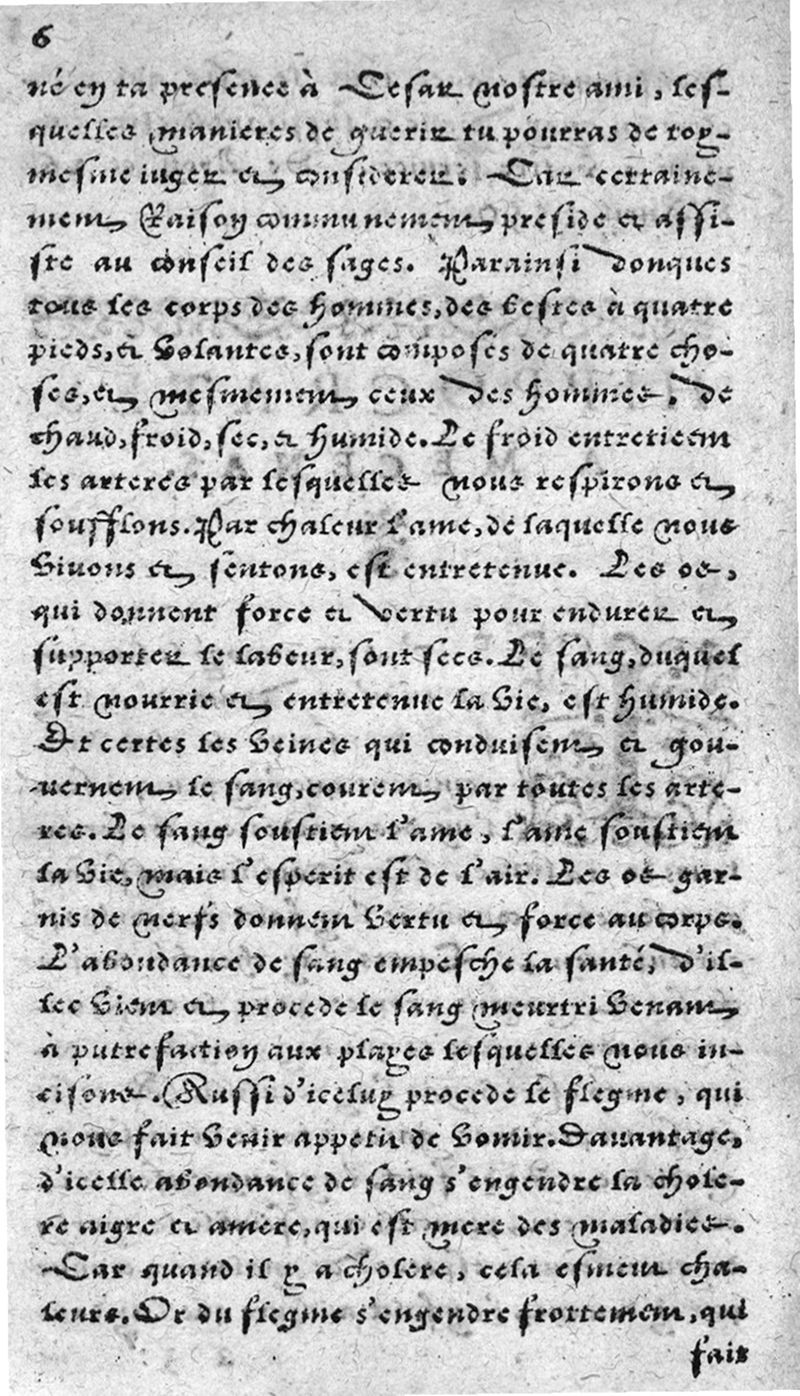 6
né en ta presence à Cesar nostre ami, les-
quelles manieres de guerir tu pourras de toy-
mesme iuger et considerer. Car certaine-
ment Raison communement preside et assi-
ste au conseil des sages. Parainsi donques
tous les corps des hommes, des bestes à quatre
pieds, et volantes, sont composés de quatre cho-
ses, et mesmement ceux des hommes, de
chaud, froid, sec, et humide. Le froid entretient
les arteres par lesquelles nous respirons et
soufflons. Par chaleur l'ame, de laquelle nous
vivons et sentons, est entretenue. Les os,
qui donnent force et vertu pour endurer et
supporter le labeur, sont secs. Le sang, duquel
est nourrie et entretenue la vie, est humide.
Et certes les veines qui conduisent et gou-
vernent le sang, courent par toutes les arte-
res. Le sang soustient l'ame, l'ame soustient
la vie, mais l'esperit est de l'air. Les os gar-
nis de nerfs donnent vertu et force au corps.
L'abondance de sang empesche la santé, d'il-
lec vient et procede le sang meurtri venant
à putrefaction aux playes lesquelles nous in-
cisons. Aussi d'iceluy procede le flegme, qui
nous fait venir appetit de vomir. Davantage,
d'icelle abondance de sang s'engendre la chole-
re aigre et amere, qui est mere des maladies.
Car quand il y a cholere, cela esmeut cha-
leurs. Or du flegme s'engendre frottement, qui
fait